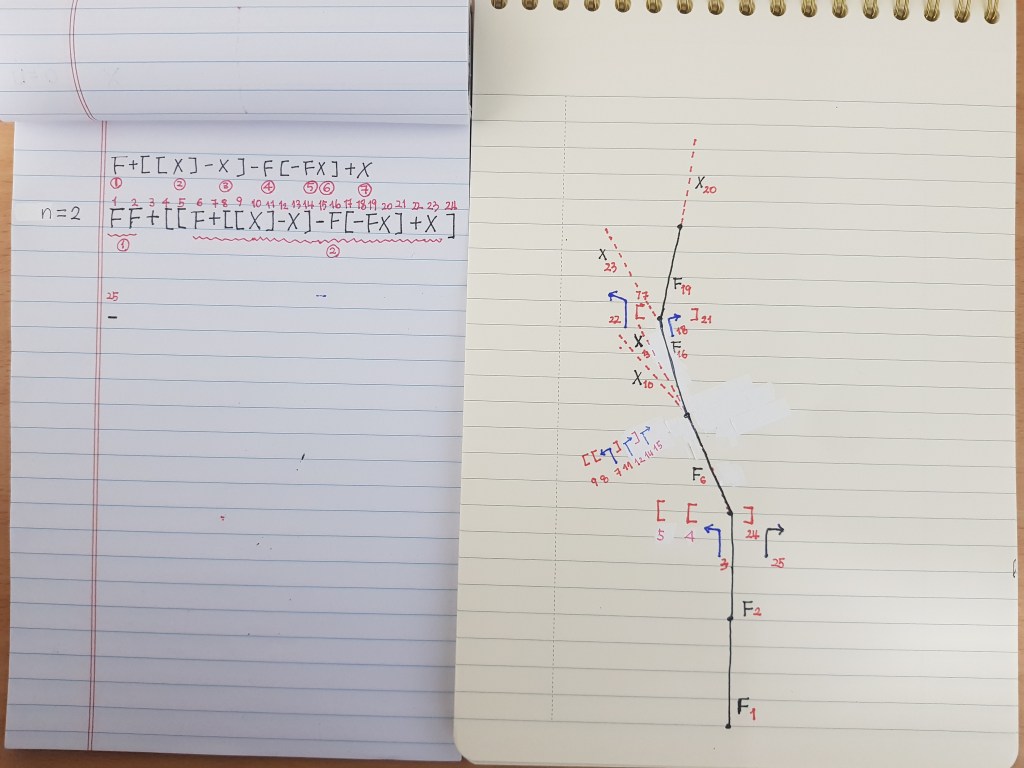 F+[[X]-X]-F[-FX]+X
① ② ③ ④ ⑤ ⑥ ⑦
1 2 3 4 5 6 7 8 9 10 11 12 13 14 15 16 17 18 19 20 21 22 23 24
n=2 FF+[[F+[[X]-X]-F[-FX]+X]
① ②
25
-
X20
X
23
F19
17
22 [ ] 21
18
X
F16
X10
[[ ] ]
9 8 7 11 12 14 15
F6
[ [ ]
5 4 24
3 25
F2
F1